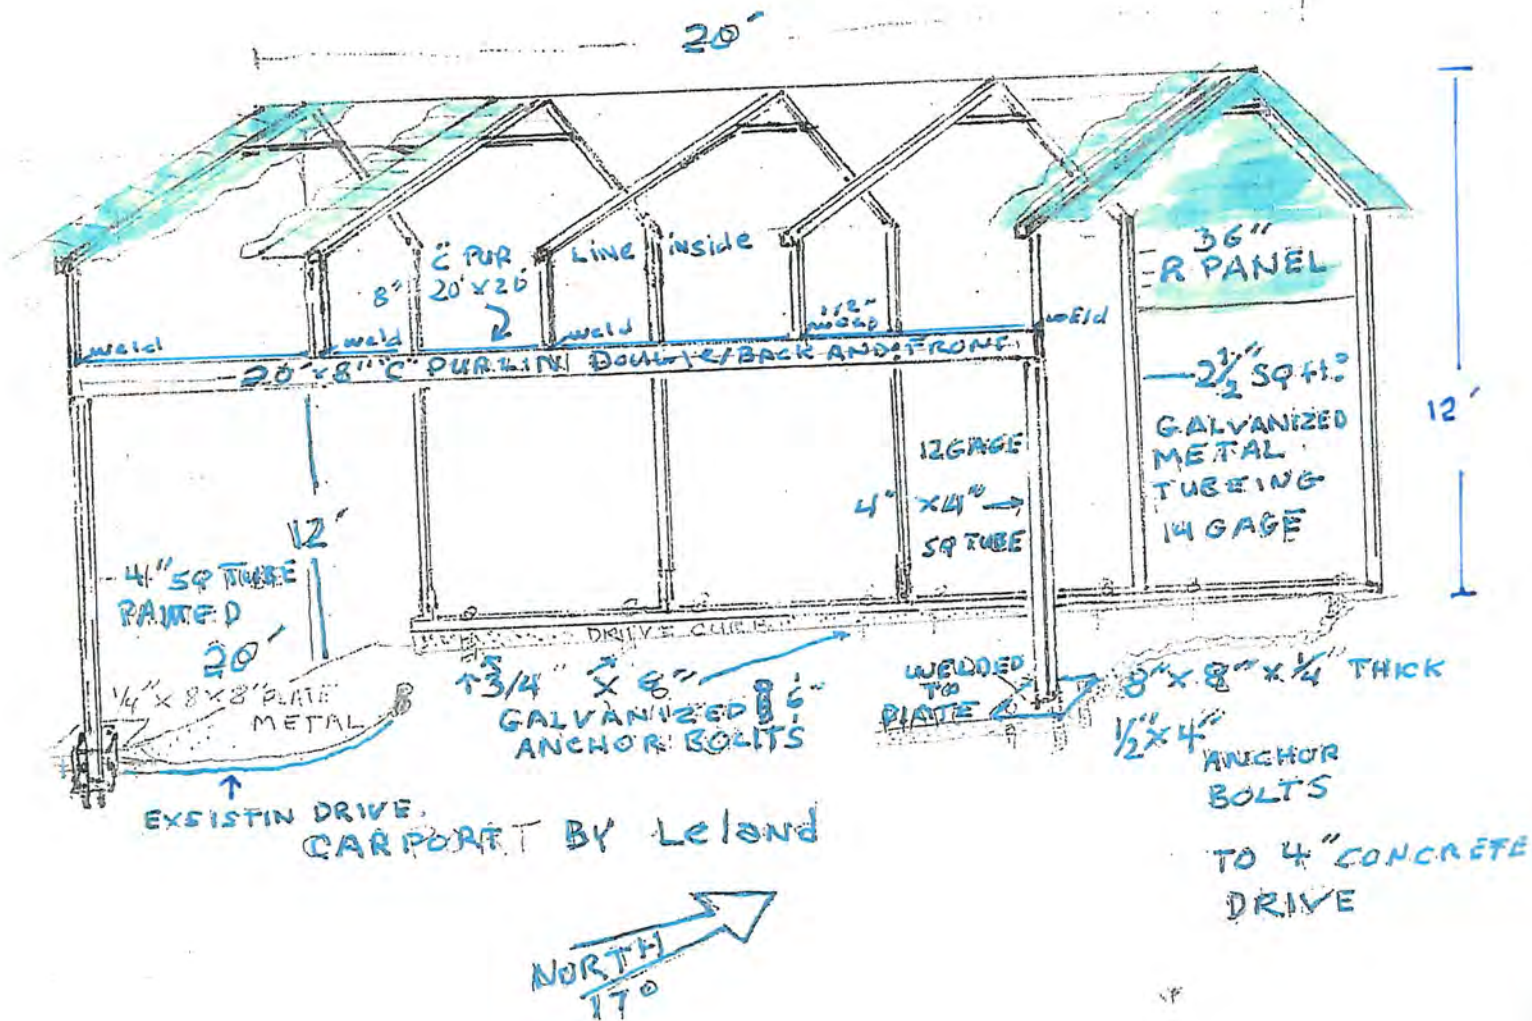 20'
36"
R PANEL
"C" PUR
8" 20' x 20'
Line inside
weld
weld
weld
1/2"
weld
weld
20' x 8" "C" PURLIN DOUBLE/BACK AND FRONT
2 1/2" SQ ft.
GALVANIZED
METAL
TUBEING
14 GAGE
12'
12 GAGE
4" x 4"
SQ TUBE
12'
4" SQ TUBE
PAINTED
20'
1/4" x 8 x 8" PLATE
METAL
DRIVE CURB
3/4" x 8"
GALVANIZED 6"
ANCHOR BOLTS
WELDED
TO
PLATE
8" x 8" x 1/4" THICK
1/2" x 4"
ANCHOR
BOLTS
TO 4" CONCRETE
DRIVE
EXSISTIN DRIVE
CARPORT BY Leland
NORTH
17°